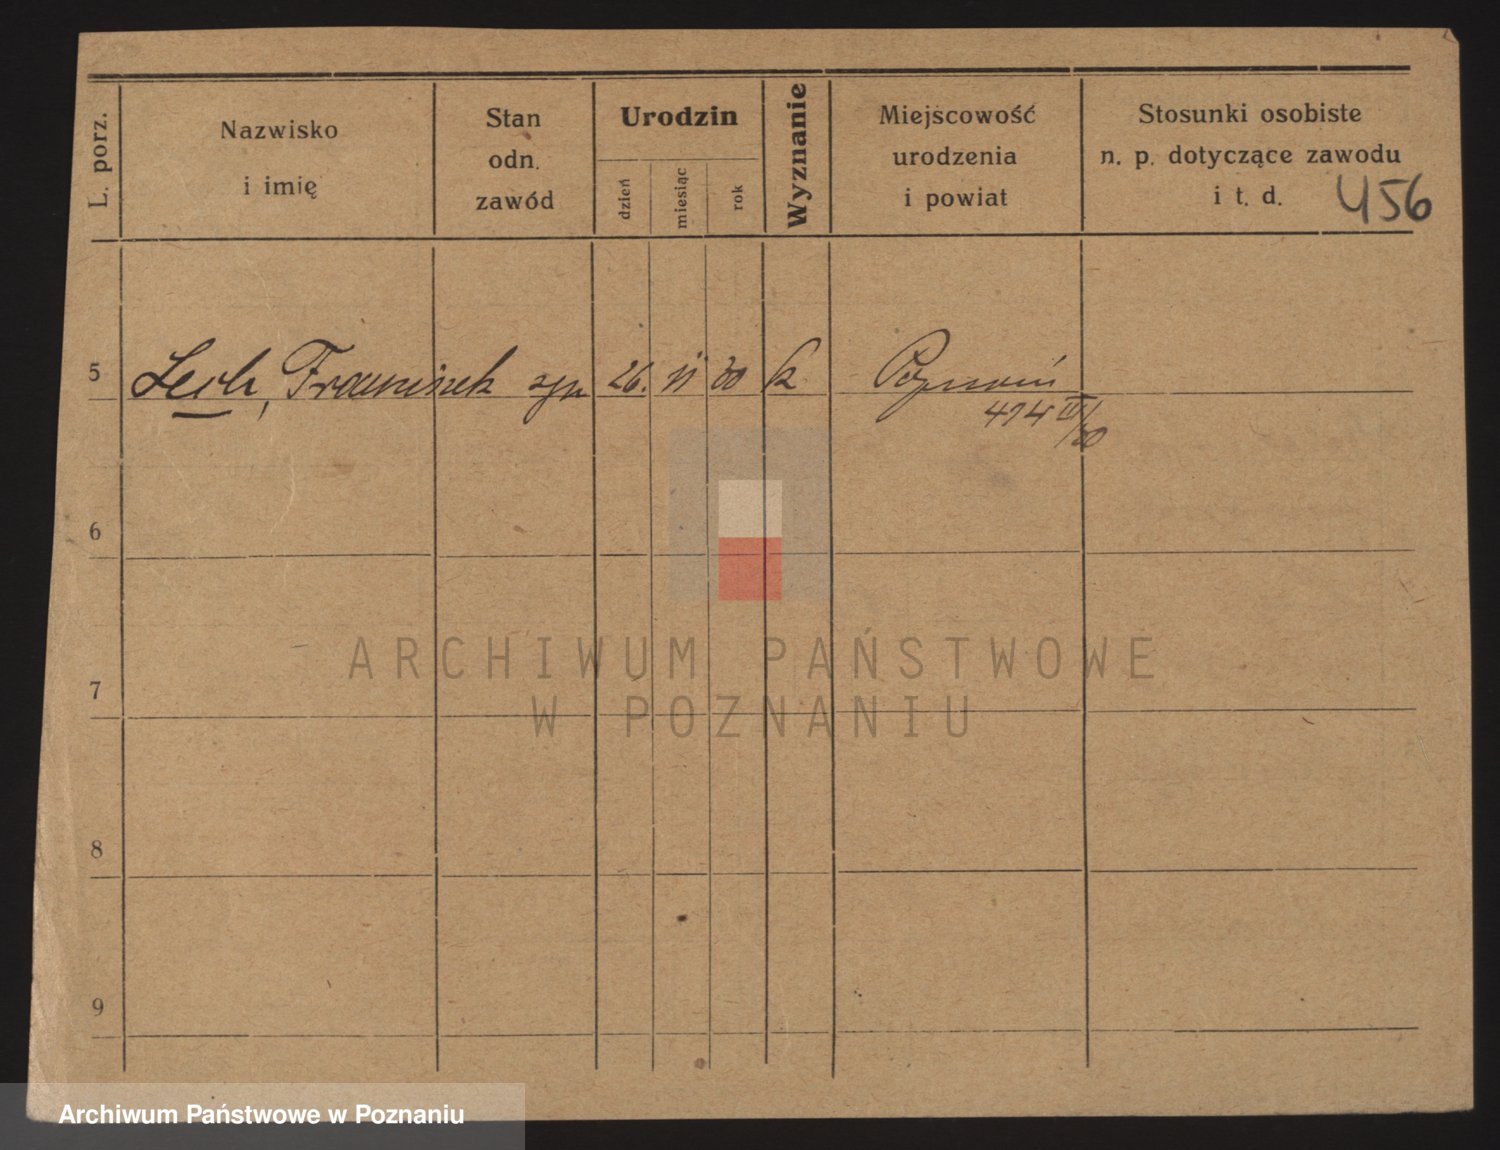 L. porz.
Nazwisko
i imię
Stan
odn.
zawód
Urodzin
dzień
miesiąc
rok
Wyznanie
Miejscowość
urodzenia
i powiat
Stosunki osobiste
n. p. dotyczące zawodu
i t. d.
456
5 Lech, Franciszek syn 26. 30 k Poznań
6
7
8
9
ARCHIWUM PAŃSTWOWE
W POZNANIU
Archiwum Państwowe w Poznaniu